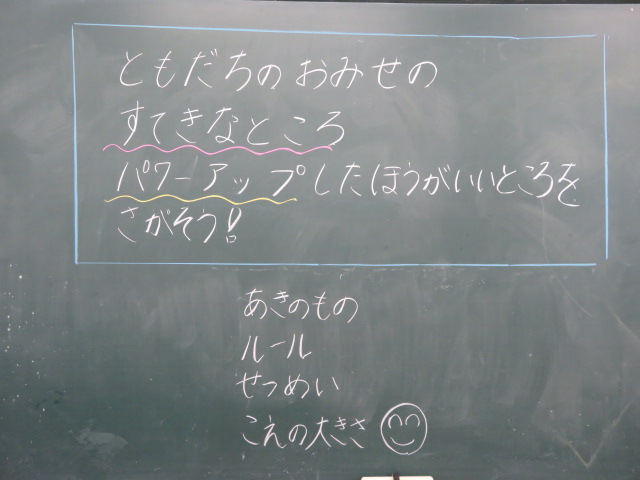 ともだちのおみせの
すてきなところ
パワーアップしたほうがいいところを
さがそう!
あきのもの
ルール
せつめい
こえの大きさ